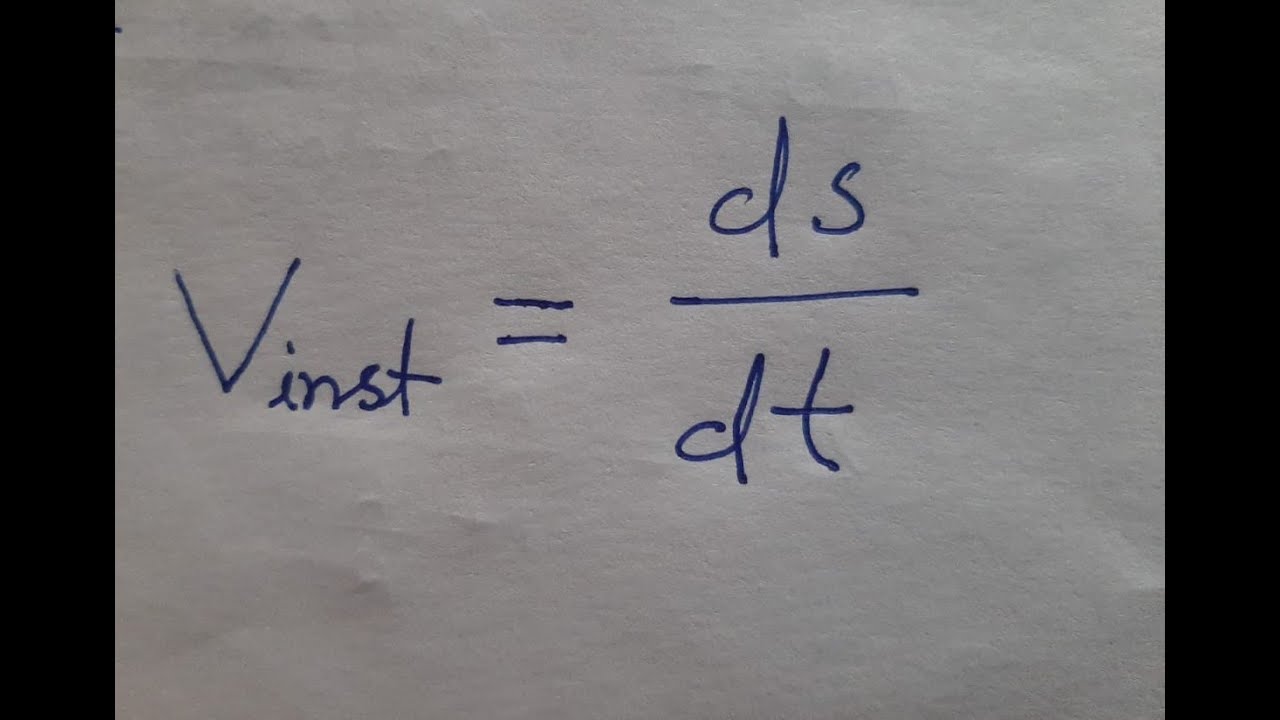 V_inst = ds/dt